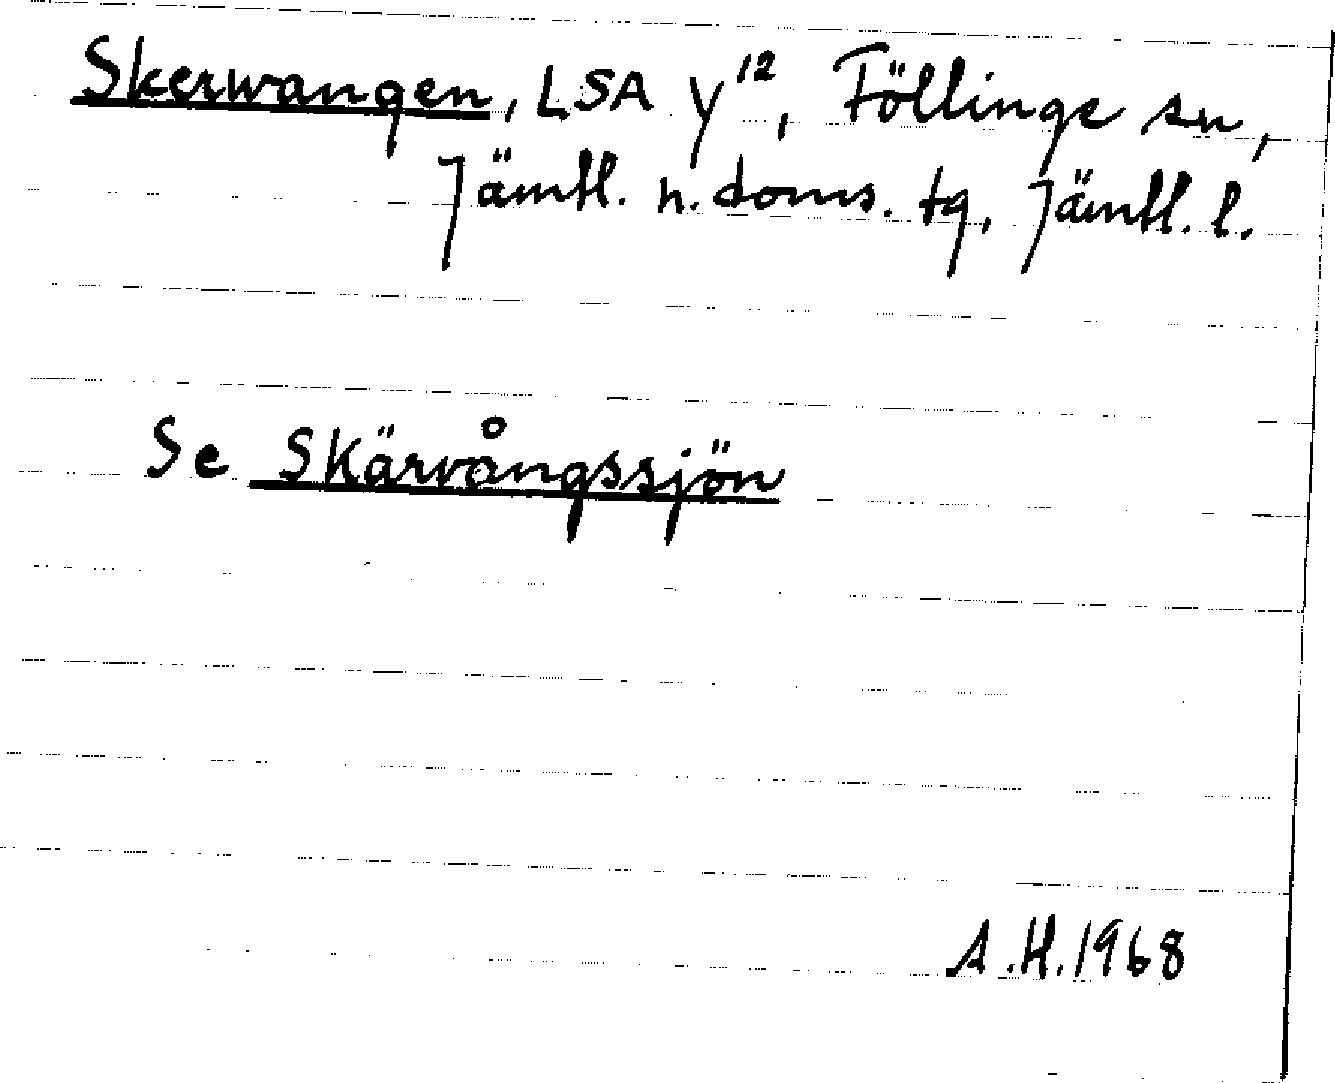 Skerwangen, LSA Y12, Föllinge sn,
Jämtl. n. doms. tg, Jämtl. l.
Se Skärvångssjön
A.H. 1968